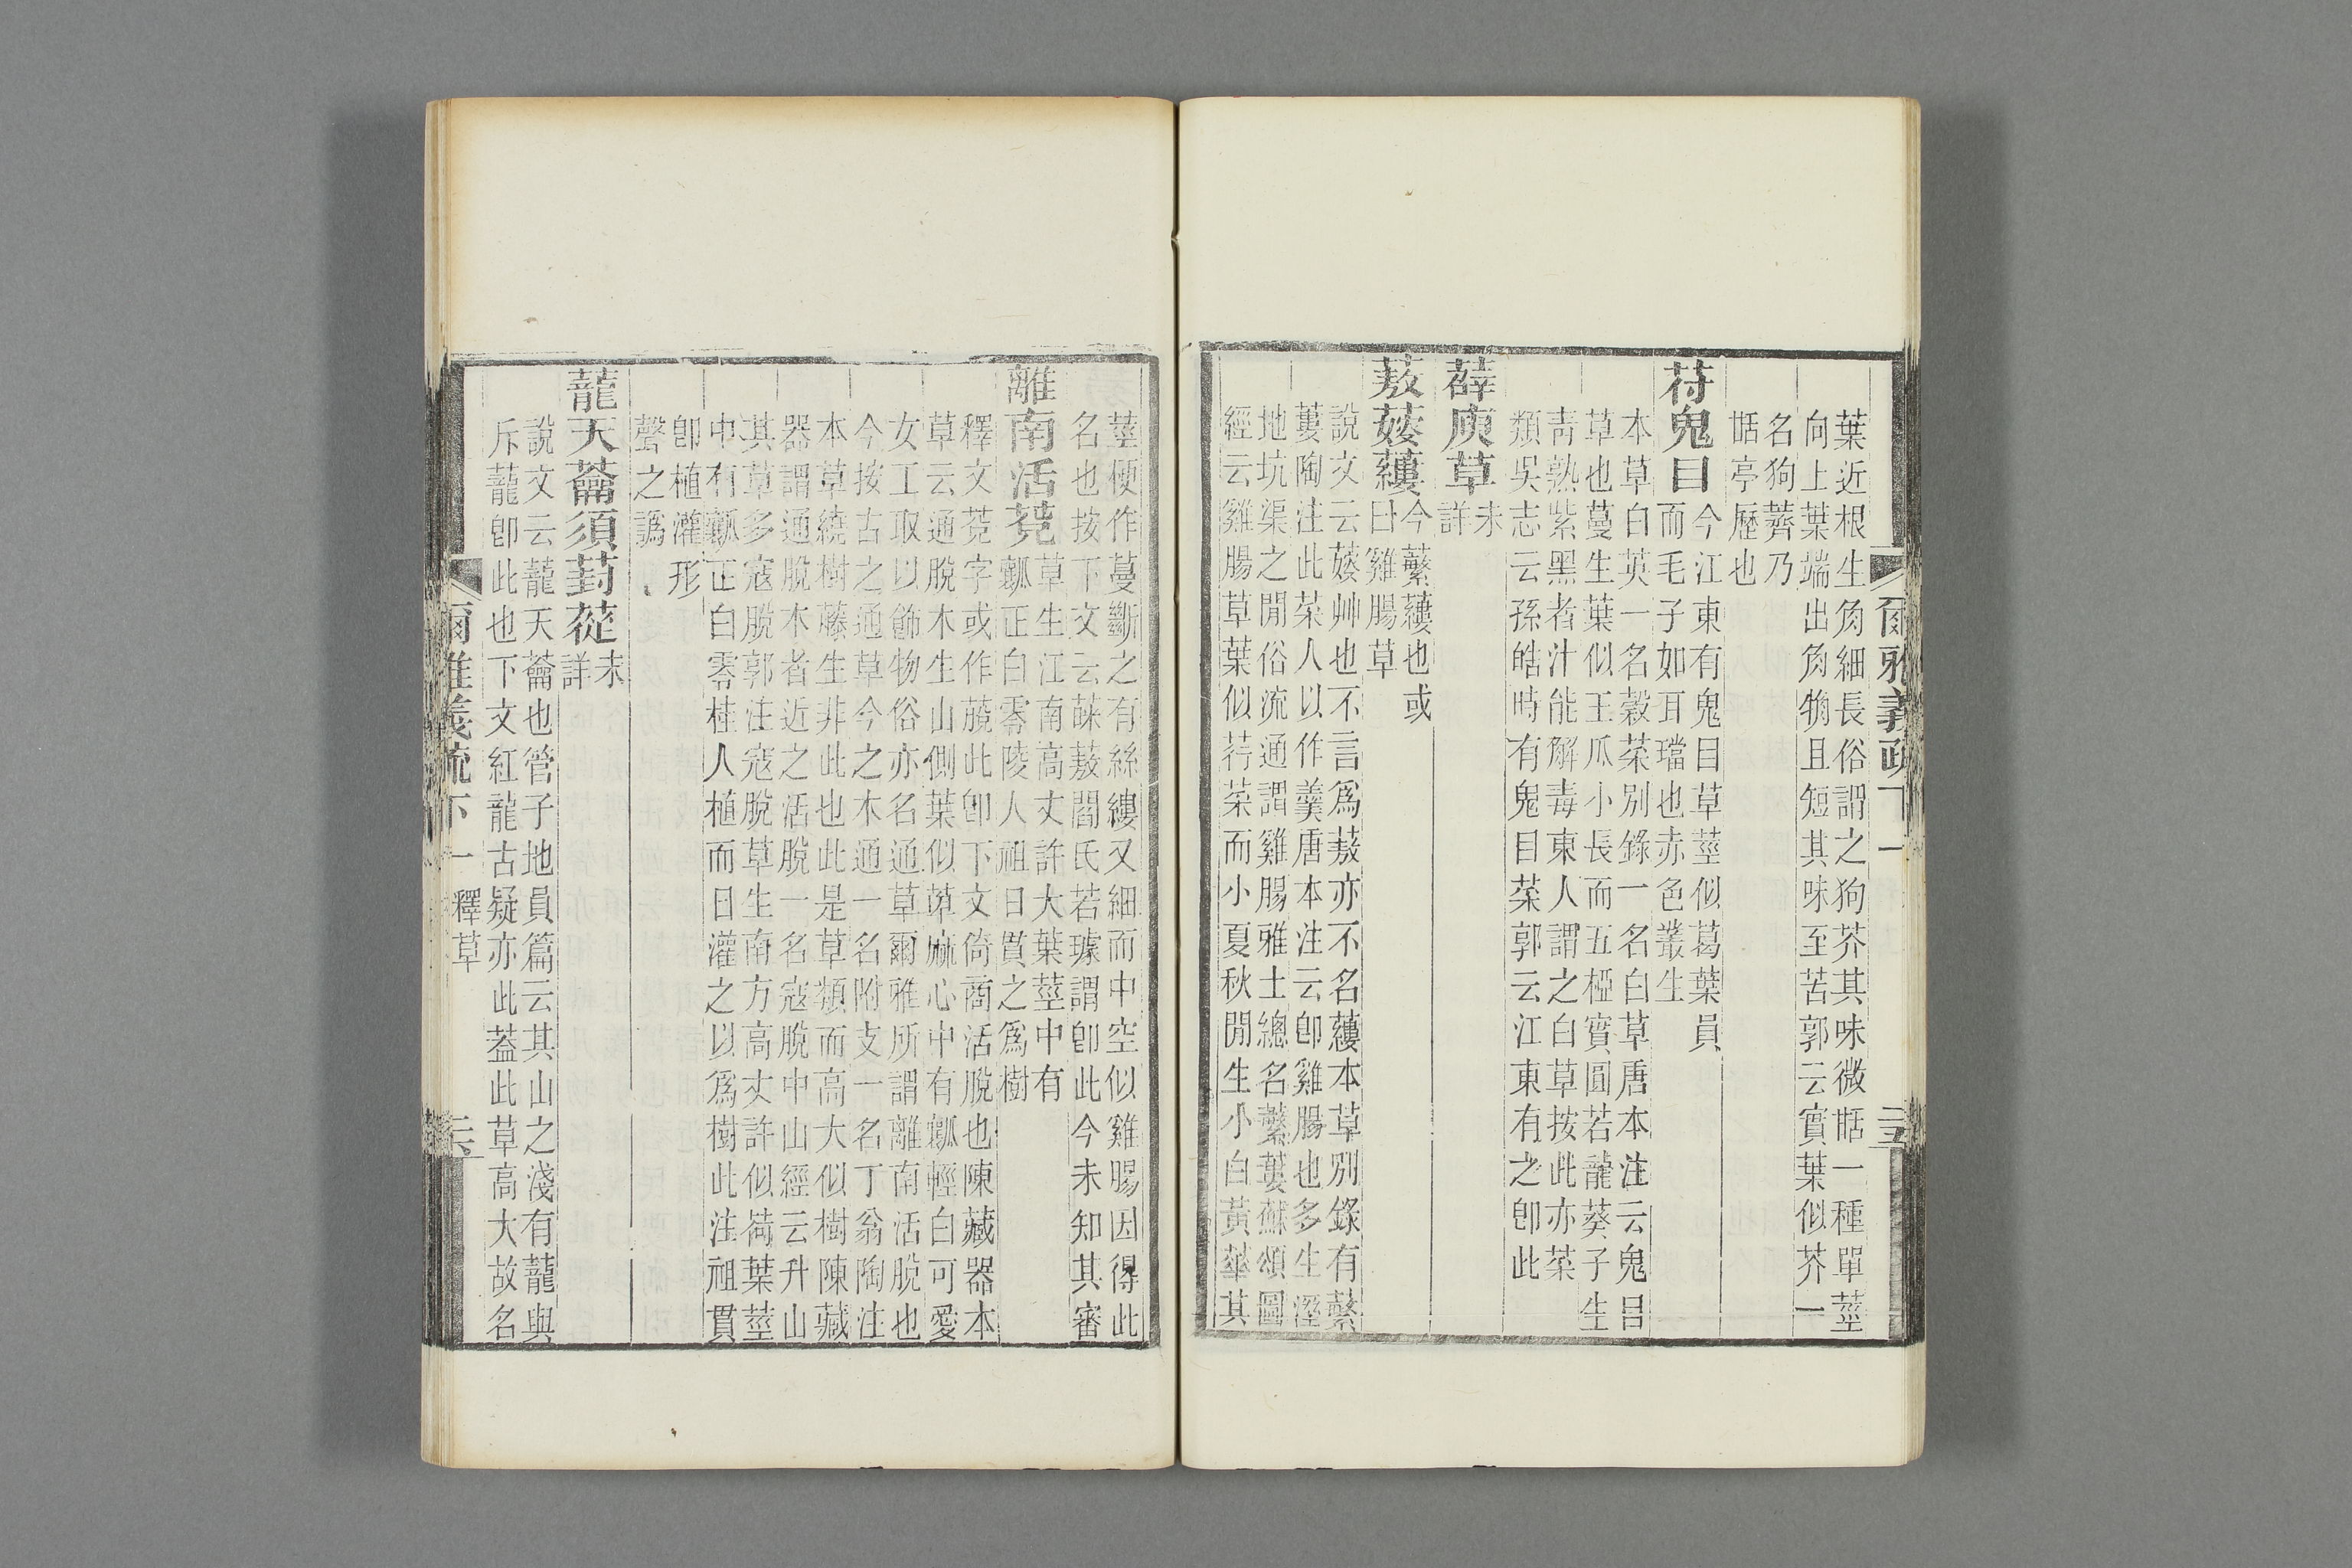 爾雅義疏下一
葉近根生角細長俗謂之狗芥其味微䑚一種單莖
向上葉端出角觕且短其味至苦郭云實葉似芥一
名狗薺乃
䑚亭歷也
苻鬼目
今江東有鬼目草莖似葛葉員
而毛子如耳璫也赤色叢生
本草白英一名穀菜別錄一名白草唐本注云鬼目
草也蔓生葉似王瓜小長而五椏實圓若龍葵子生
青熟紫黑者汁能解毒東人謂之白草按此亦菜
類吳志云孫皓時有鬼目菜郭云江東有之卽此
薜庾草
未
詳
蔜䕅蔞
今蘩蔞也或
曰雞腸草
說文云䕅艸也不言爲蔜亦不名蔞本草別錄有蘩
蔞陶注此菜人以作羹唐本注云卽雞腸也多生溼
地坑渠之閒俗流通謂雞腸雅士總名蘩蔞蘇頌圖
經云雞腸草葉似荇菜而小夏秋閒生小白黃華其
莖便作蔓斷之有絲縷又細而中空似雞腸因得此
名也按下文云菋蔜閻氏若璩謂卽此今未知其審
離南活莌
草生江南高丈許大葉莖中有
瓤正白零陵人祖日貫之爲樹
釋文莌字或作䔽此卽下文倚商活脫也陳藏器本
草云通脫木生山側葉似萆麻心中有瓤輕白可愛
女工取以飾物俗亦名通草爾雅所謂離南活脫也
今按古之通草今之木通一名附支一名丁翁陶注
本草繞樹藤生非此也此是草類而高大似樹陳藏
器謂通脫木者近之活脫一名寇脫中山經云升山
其草多寇脫郭注寇脫草生南方高丈許似荷葉莖
中有瓤正白零桂人植而日灌之以爲樹此注祖貫
卽植灌形
聲之譌
蘢天蘥須葑蓯
未
詳
說文云蘢天蘥也管子地員篇云其山之淺有蘢與
斥蘢卽此也下文紅蘢古疑亦此葢此草高大故名
爾雅義疏下一 釋草